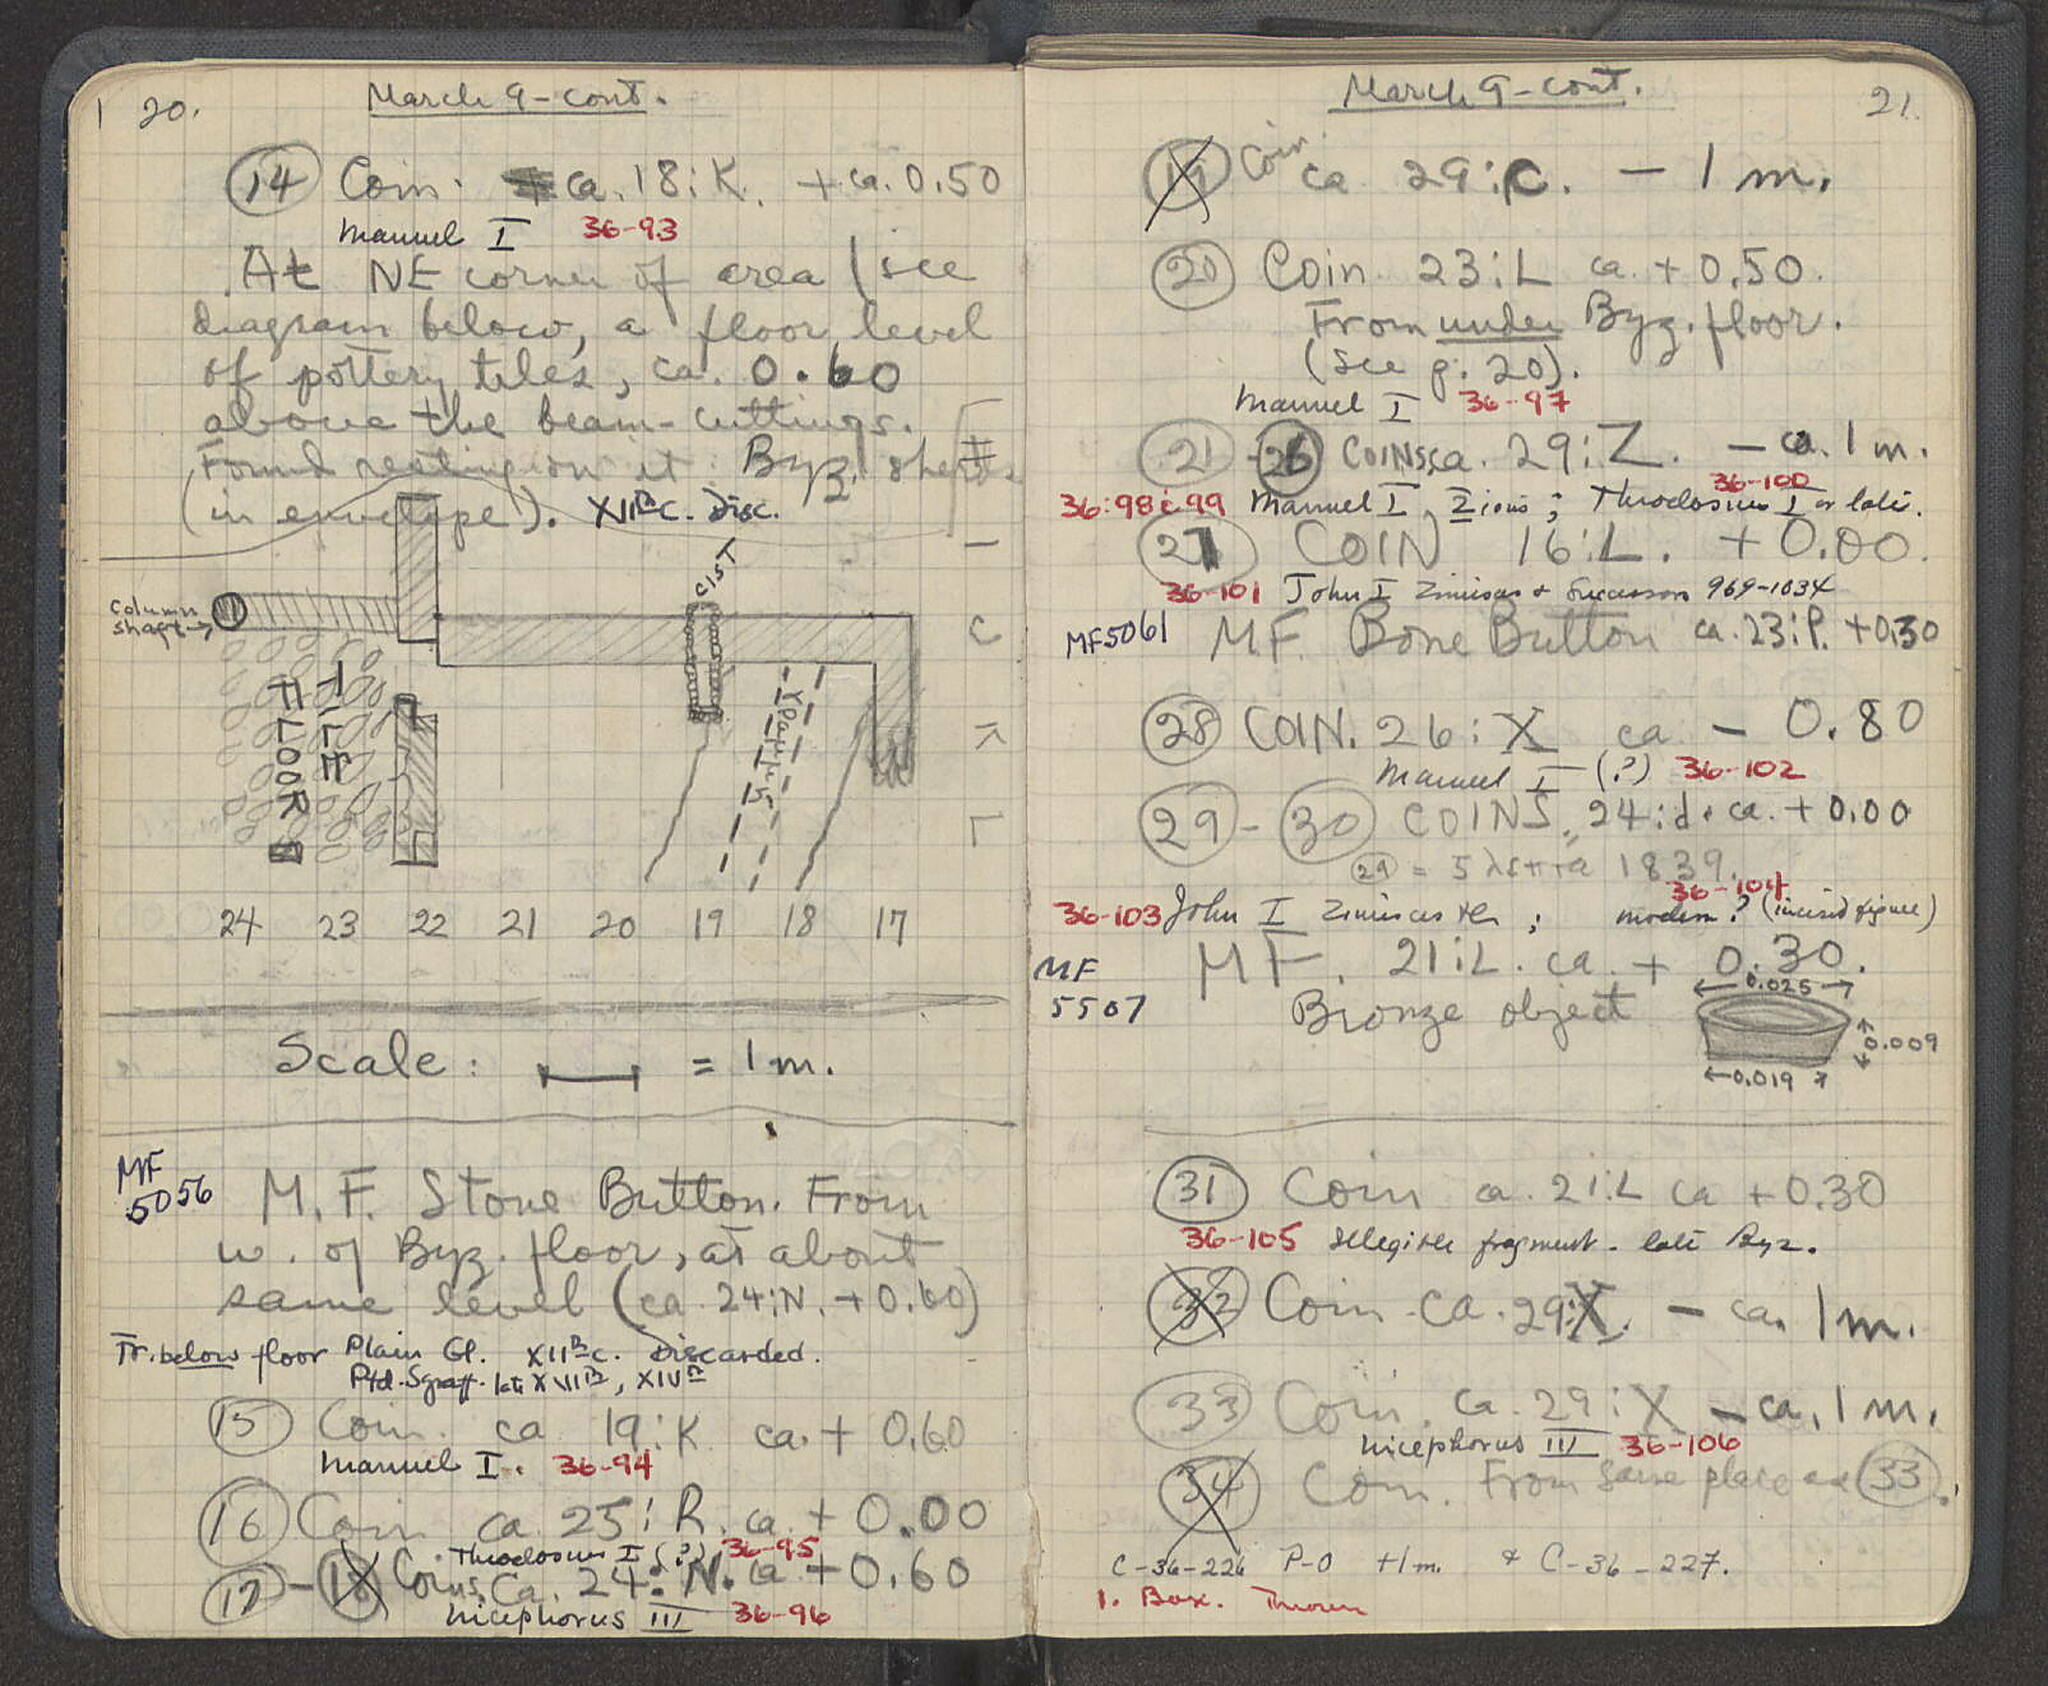 20.
March 9 - cont.
(14) Coin. ca. 18:K. + ca. 0.50
Manuel I 36-93
At NE corner of area (see
diagram below, a floor level
of pottery tiles, ca. 0.60
above the beam-cuttings.
Found resting on it Byz. sherds
(in envelope). XIIth c. Disc.
CIST
column
shaft →
TILE
FLOOR
24 23 22 21 20 19 18 17
Scale: = 1 m.
MF
5056
M.F. Stone Button. From
w. of Byz. floor, at about
same level (ca. 24:N. + 0.60)
Fr. below floor Plain Gl. XIIth c. Discarded.
Ptd. Sgraff. late XIIth, XIVth
(15) Coin. ca 19:K ca. + 0.60
Manuel I. 36-94
(16) Coin ca. 25:R. ca. + 0.00
Theodosius I (?) 36-95
(17)-(18) Coins. Ca. 24:N. ca + 0.60
Nicephorus III 36-96
March 9 - cont.
21.
(19) Coin ca 29:C. - 1 m.
(20) Coin 23:L ca. + 0.50.
From under Byz. floor.
(See p. 20).
Manuel I 36-97
(21)-(26) COINS, ca. 29:Z. - ca. 1 m.
36-100
36:98 & 99 Manuel I, ; Theodosius I or late.
(27) COIN 16:L. + 0.00.
36-101 John I Zimisces & Successors 969-1034
MF5061 M.F. Bone Button ca. 23:P. +0.30
(28) COIN. 26:X ca - 0.80
Manuel I (?) 36-102
(29)-(30) COINS, 24:d. ca. + 0.00
(29) = 5 λεπτα 1839.
36-104
36-103 John I Zimisces ; modern? (incised figure)
MF
5507
M.F. 21:L. ca. + 0.30.
Bronze object
0.025
0.009
0.019
(31) Coin ca. 21:L ca + 0.30
36-105 Illegible fragment - late Byz.
(32) Coin - ca. 29:X. - ca. 1 m.
(33) Coin. ca. 29:X - ca. 1 m.
Nicephorus III 36-106
(34) Coin. From same place as (33).
C-36-226 P-O +1m. & C-36-227.
1. Box. Thrown